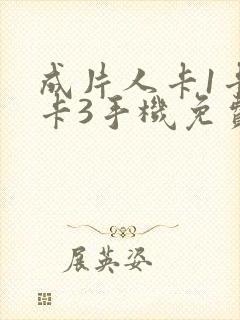 成片人卡1卡
卡3手機免費
展英姿